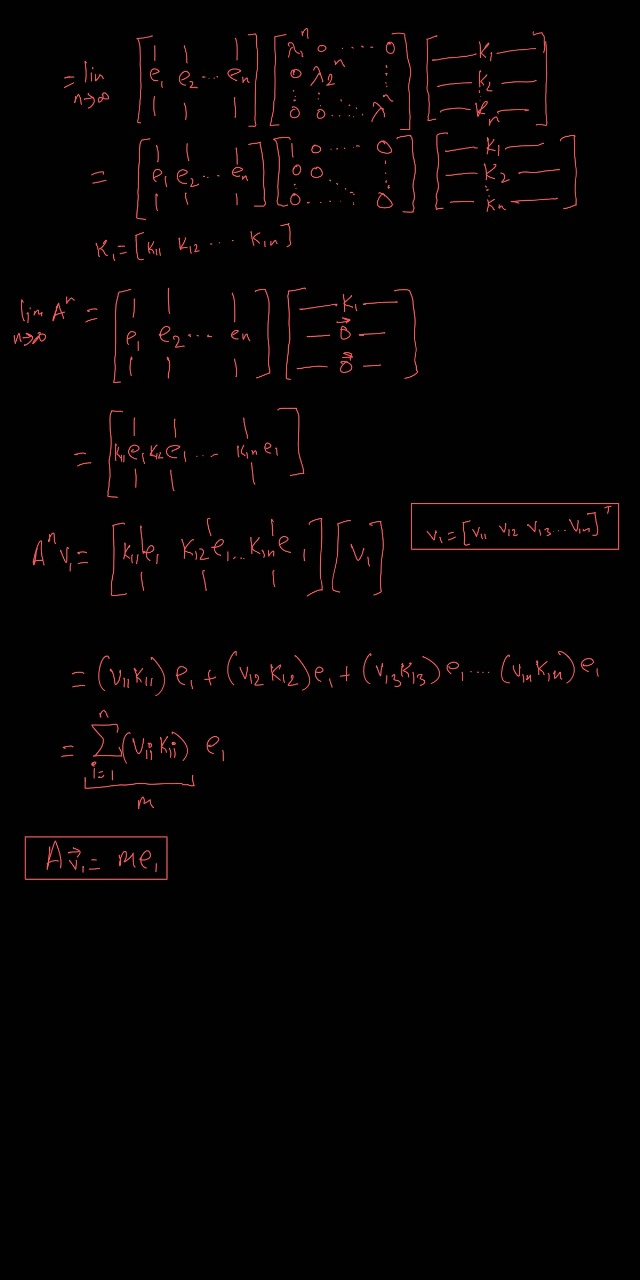 = lim n→∞ [e₁ e₂ ... eₙ] [λ₁ⁿ 0 ..... 0
0 λ₂ⁿ ⋮
⋮ ⋮
0 0 ..... λⁿ] [— K₁ —
— K₂ —
⋮
— Kₙ —]
= [e₁ e₂ ... eₙ] [1 0 ..... 0
0 0 ⋮
⋮
0 ..... 0] [— K₁ —
— K₂ —
⋮
— Kₙ —]
K₁ = [K₁₁ K₁₂ ... K₁ₙ]
lim n→∞ Aⁿ = [e₁ e₂ ... eₙ] [— K₁ —
— 0⃗ —
— 0⃗ —]
= [K₁₁e₁ K₁₂e₁ .... K₁ₙe₁]
Aⁿv₁ = [K₁₁e₁ K₁₂e₁ ... K₁ₙe₁] [v₁]
v₁ = [v₁₁ v₁₂ v₁₃ ... v₁ₙ]ᵀ
= (v₁₁K₁₁) e₁ + (v₁₂K₁₂) e₁ + (v₁₃K₁₃) e₁ .... (v₁ₙK₁ₙ) e₁
= Σ i=1 n (vᵢᵢ Kᵢᵢ) e₁
m
Av⃗₁ = me₁